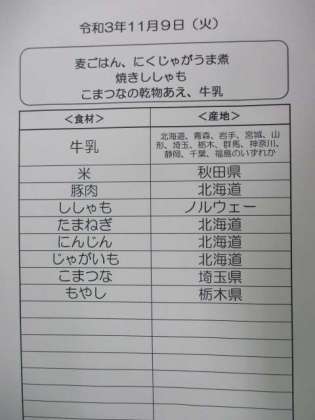 令和3年11月9日（火）
麦ごはん、にくじゃがうま煮
焼きししゃも
こまつなの乾物あえ、牛乳
＜食材＞ ＜産地＞
牛乳 北海道、青森、岩手、宮城、山
形、埼玉、栃木、群馬、神奈川、
静岡、千葉、福島のいずれか
米 秋田県
豚肉 北海道
ししゃも ノルウェー
たまねぎ 北海道
にんじん 北海道
じゃがいも 北海道
こまつな 埼玉県
もやし 栃木県